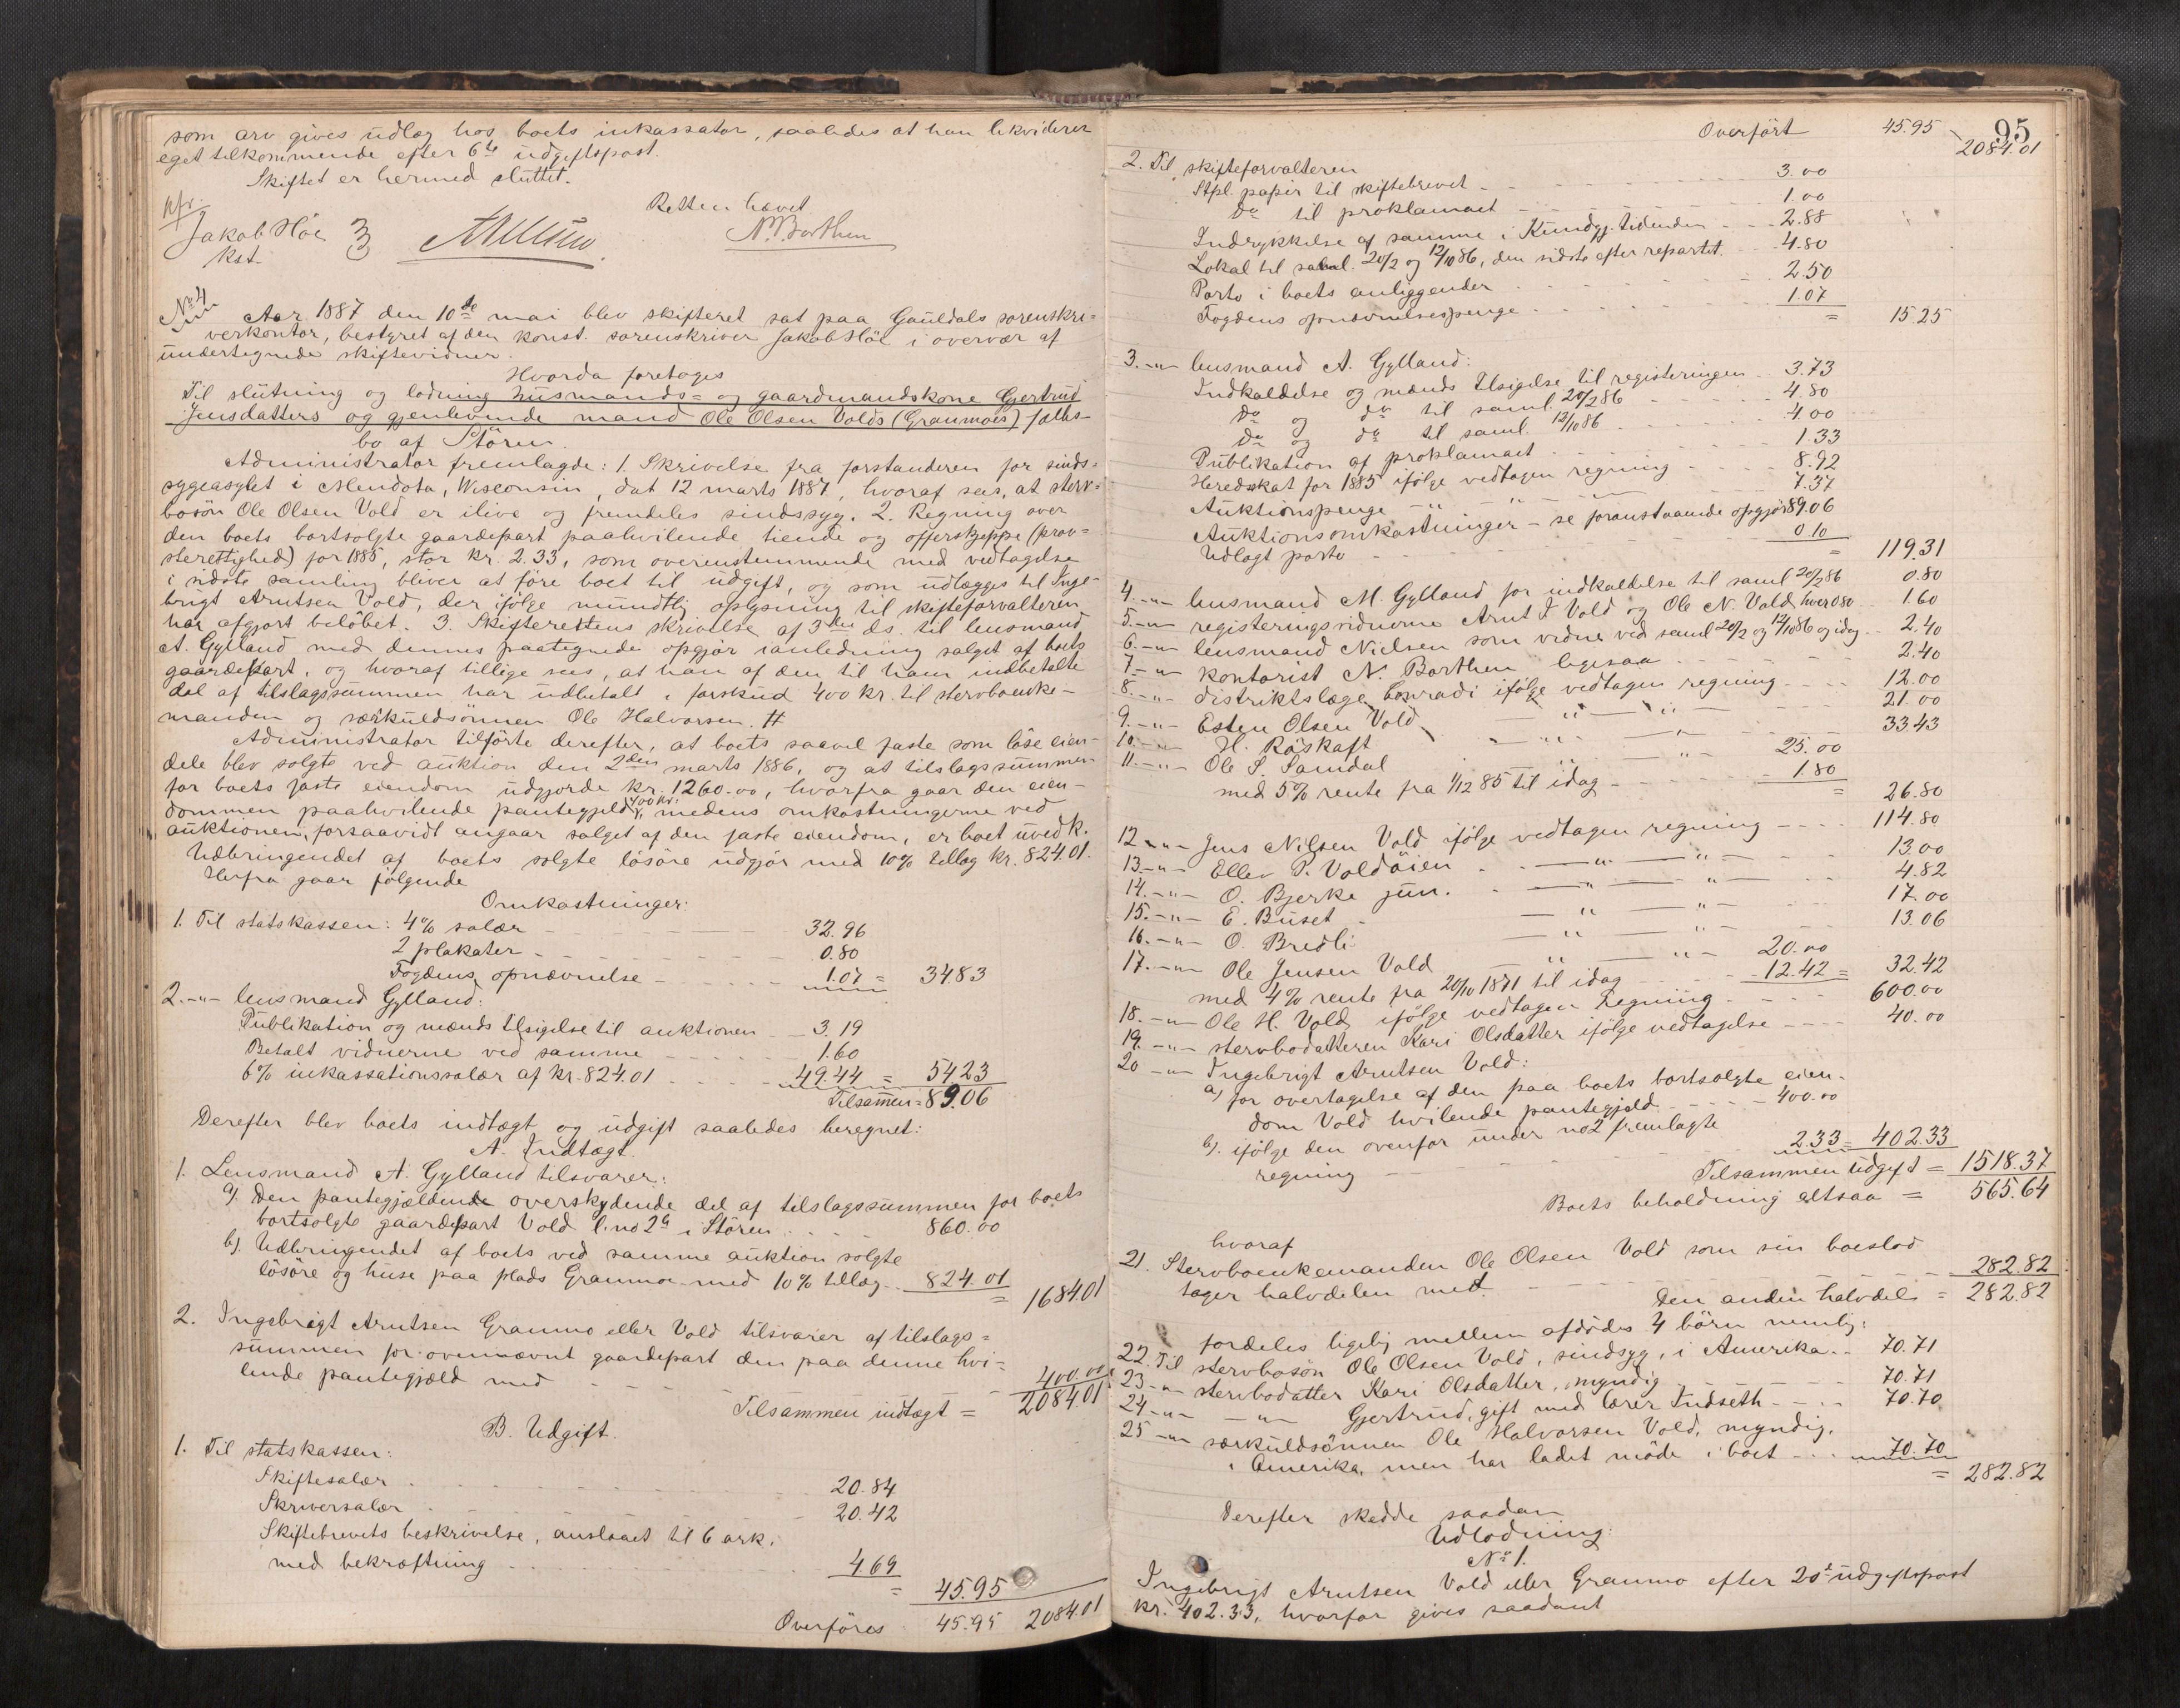 som arv gives üdlæg hos boets inkassator, saaledes at han likviderer
eget tilkommende efter 6te üdgiftspost.
Skiftet er hermed sluttet.
Retten hævet
Jakob Höe
kst.
N. Borthen
No 4
Aar 1887 den 10de mai blev skifteret sat paa Gauldals sorenskri=
verkontor, bestyret af den konst. sorenskriver Jakob Höe i overvær af
undertegnede skiftevidner.
Hvorda foretoges
Til slütning og lodning hüsmands= og gaardmandskone Gjertrüd
Jensdatters og gjenlevende mand Ole Olsen Volds (Granmoes) fælles-
bo af Stören.
Administrator fremlagde: 1. Skrivelse fra forstanderen for sinds=
sygeasylet i Mendota, Wisconsin, dat 12 marts 1887, hvoraf sees, at sterv=
bosön Ole Olsen Vold er ilive og fremdeles sindssyg. 2. Regning over
den boets bortsolgte gaardepart paahvilende tiende og offerskjeppe (prov-
sterettighed) for 1885, stor kr. 2.33, som overenstemmende med vedtagelse
i sidste samling bliver at före boet til üdgift, og som üdlægges til Inge-
brigt Arntsen Vold, der ifölge mündtlig oplysning til skifteforvalteren
har afgjort belöbet. 3. Skifterettens skrivelse af 3die ds. til lensmand
A. Gylland med dennes paategnede opgjör i anledning salget af boets
gaardepart, og hvoraf tillige sees, at han af den til ham indbetalte
del af tilslagssümmen har üdbetalt i forskud 400 kr. til stervboenke-
manden og særküldsönnen Ole Halvorsen. #
Administrator tilförte derefter, at boets saavel faste som löse eien-
dele blev solgte ved auktion den 2den marts 1886, og at tilslagssümmen
for boets faste eiendom üdgjorde kr. 1260.00, hvorfra gaar den eien-
dommen paahvilende pantegjeld 400 kr., medens omkostningerne ved
auktionen, forsaavidt angaar salget af den faste eiendom, er boet üvedk.
Udbringendet af boets solgte lösöre üdgjör med 10% tillæg kr. 824.01.
Herfra gaar fölgende
Omkostninger:
1. Til statskassen: 4% salær 32.96
2 plakater 0.80
Fogdens opnævnelse 1.07 = 34.83
2. -"- lensmand Gylland:
Publikation og mænds tilsigelse til auktionen 3.19
Betalt vidnerne ved samme 1.60
6% inkassationssalær af kr. 824.01 49.44 = 54.23
Tilsammen = 89.06
Derefter blev boets indtægt og üdgift saaledes beregnet:
A. Indtægt.
1. Lensmand A. Gylland tilsvarer:
a). Den pantegjældende overskydende del af tilslagssummen for boets
bortsolgte gaardepart Vold l.no 2a i Stören 860.00
b). Udbringendet af boets ved samme auktion solgte
lösöre og huse paa plads Granmo med 10% tillæg 824.01
= 1684.01
2. Ingebrigt Arntsen Granmo eller Vold tilsvarer af tilslags=
sümmen for ovennævnt gaardepart den paa denne hvi=
lende pantegjæld med 400.00
Tilsammen indtægt = 2084.01
B. Udgift.
1. Til statskassen:
Skiftesalær 20.84
Skriversalær 20.42
Skiftebrevets beskrivelse, anslaaet til 6 ark,
med bekræftning 4.69
= 45.95
Overföres 45.95 2084.01
95
Overfört 45.95 2084.01
2. Til skifteforvalteren
Stpl. papir til skiftebrevet 3.00
do til proklamaet 1.00
Indrykkelse af samme i Kundgj. tidenden 2.88
Lokal til saml. 20/2 og 12/10 86, den sidste efter repartet. 4.80
Porto i boets anliggender 2.50
Fogdens opnævnelsespenge 1.07
= 15.25
3. -"- lensmand A. Gylland:
Indkaldelse og mænds tilsigelse til registeringen 3.73
do og do til saml. 20/2 86 4.80
do og do til saml. 12/10 86 4.00
Publikation af proklamaet 1.33
Heredskat for 1885 ifölge vedtagen regning 8.92
Auktionspenge -"- 7.37
Auktionsomkostninger - se foranstaaende opgjör 89.06
Udlagt porto 0.10
= 119.31
4. -"- lensmand M. Gylland for indkaldelse til saml 20/2 86 0.80
5. -"- registeringsvidnerne Arnt I Vold og Ole N. Vold, hver 0.80 1.60
6. -"- lensmand Nielsen som vidne ved saml 20/2 og 12/10 86 og idag 2.40
7. -"- kontorist N. Borthen ligesaa 2.40
8. -"- distriktslæge Conradi ifölge vedtagen regning 12.00
9. -"- Esten Olsen Vold -"- -"- 21.00
10. -"- H. Röskaft -"- -"- 33.43
11. -"- Ole S. Samdal -"- 25.00
med 5% rente fra 1/12 85 til idag 1.80
= 26.80
12 -"- Jens Nilsen Vold ifölge vedtagen regning 114.80
13. -"- Ellev P. Voldöien -"- -"- 13.00
14. -"- O. Bjerke jün. -"- -"- 4.82
15. -"- E. Buset -"- -"- 17.00
16. -"- O. Bredli -"- -"- 13.06
17. -"- Ole Jensen Vold -"- -"- 20.00
med 4% rente fra 20/10 1871 til idag 12.42 = 32.42
18. -"- Ole H. Vold, ifölge vedtagen regning 600.00
19. -"- stervbodatteren Kari Olsdatter ifölge vedtagelse 40.00
20 -"- Ingebrigt Arntsen Vold:
a) for overtagelse af den paa boets bortsolgte eien-
dom Vold hvilende pantegjeld 400.00
b). ifölge den ovenfor ünder no 2 fremlagte
regning 2.33 = 402.33
Tilsammen üdgift = 1518.37
Boets beholdning altsaa = 565.64
hvoraf
21. Stervboenkemanden Ole Olsen Vold som sin boeslod
tager halvdelen med 282.82
Den anden halvdel = 282.82
fordeles ligelig mellem afdödes 4 börn nemlig:
22. Til stervbosön Ole Olsen Vold, sindsyg, i Amerika 70.71
23 -"- stervbodatter Kari Olsdatter, myndig 70.71
24 -"- -"- Gjertrud, gift med lærer Indseth 70.70
25 -"- særkuldsönnen Ole Halvorsen Vold, myndig,
i Amerika, men har ladet möde i boet 70.70
= 282.82
Derefter skedde saadan
Udlodning:
No 1.
Ingebrigt Arntsen Vold eller Granmo efter 20de üdgiftspost
kr. 402.33, hvorfor gives saadant